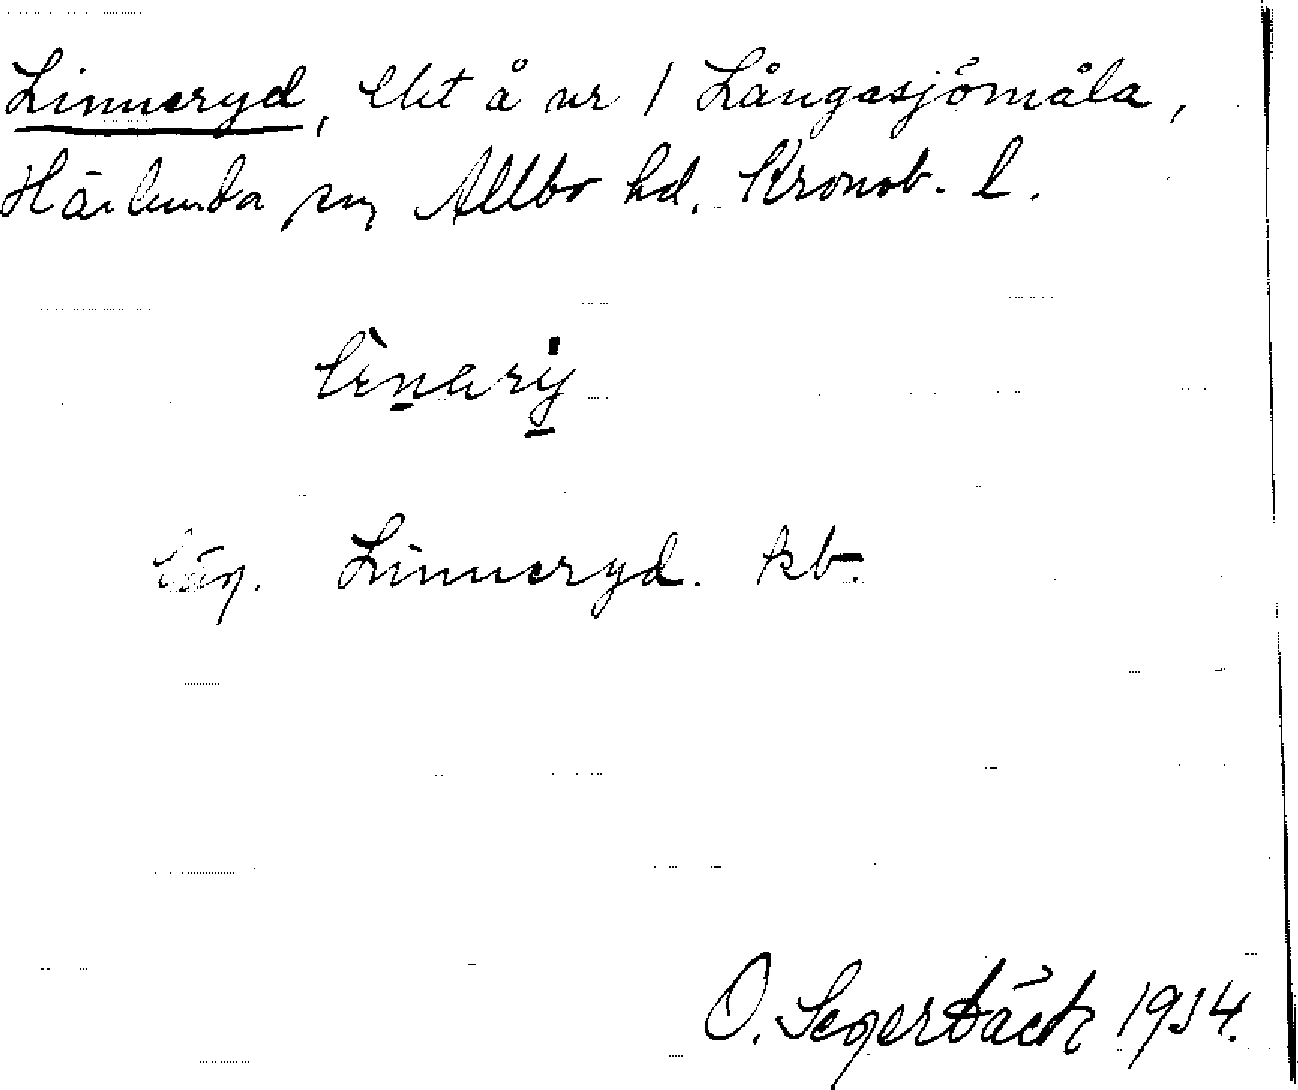 Linneryd, lht å nr 1 Långasjömåla,
Härlunda sn, Allbo hd. Kronob. l.
linarÿ
Linneryd. kb.
O. Segerbäck 1934.